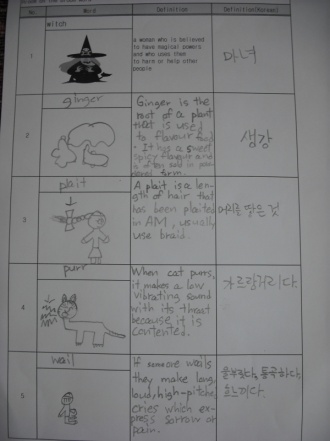 No.
Word
Definition
Definition(Korean)
1
witch
A woman who is believed
to have magical powers
and who uses them
to harm or help other
people
마녀
2
ginger
Ginger is the
root of a plant
that is used
to flavour food
. It has a sweet
spicy flavour and
is often sold in
form.
생강
3
plait
A plait is a len-
gth of hair that
has been plaited
in AM, usually
use braid.
머리를 땋은 것
4
purr
When cat purrs,
it makes a low
vibrating sound
with its throat
because it is
contented.
가르랑거리다.
5
wail
If someone wails
they make long,
loud, high-pitch,
cries which ex-
press sorrow or
pain.
울부짖다, 통곡하다,
흐느끼다.